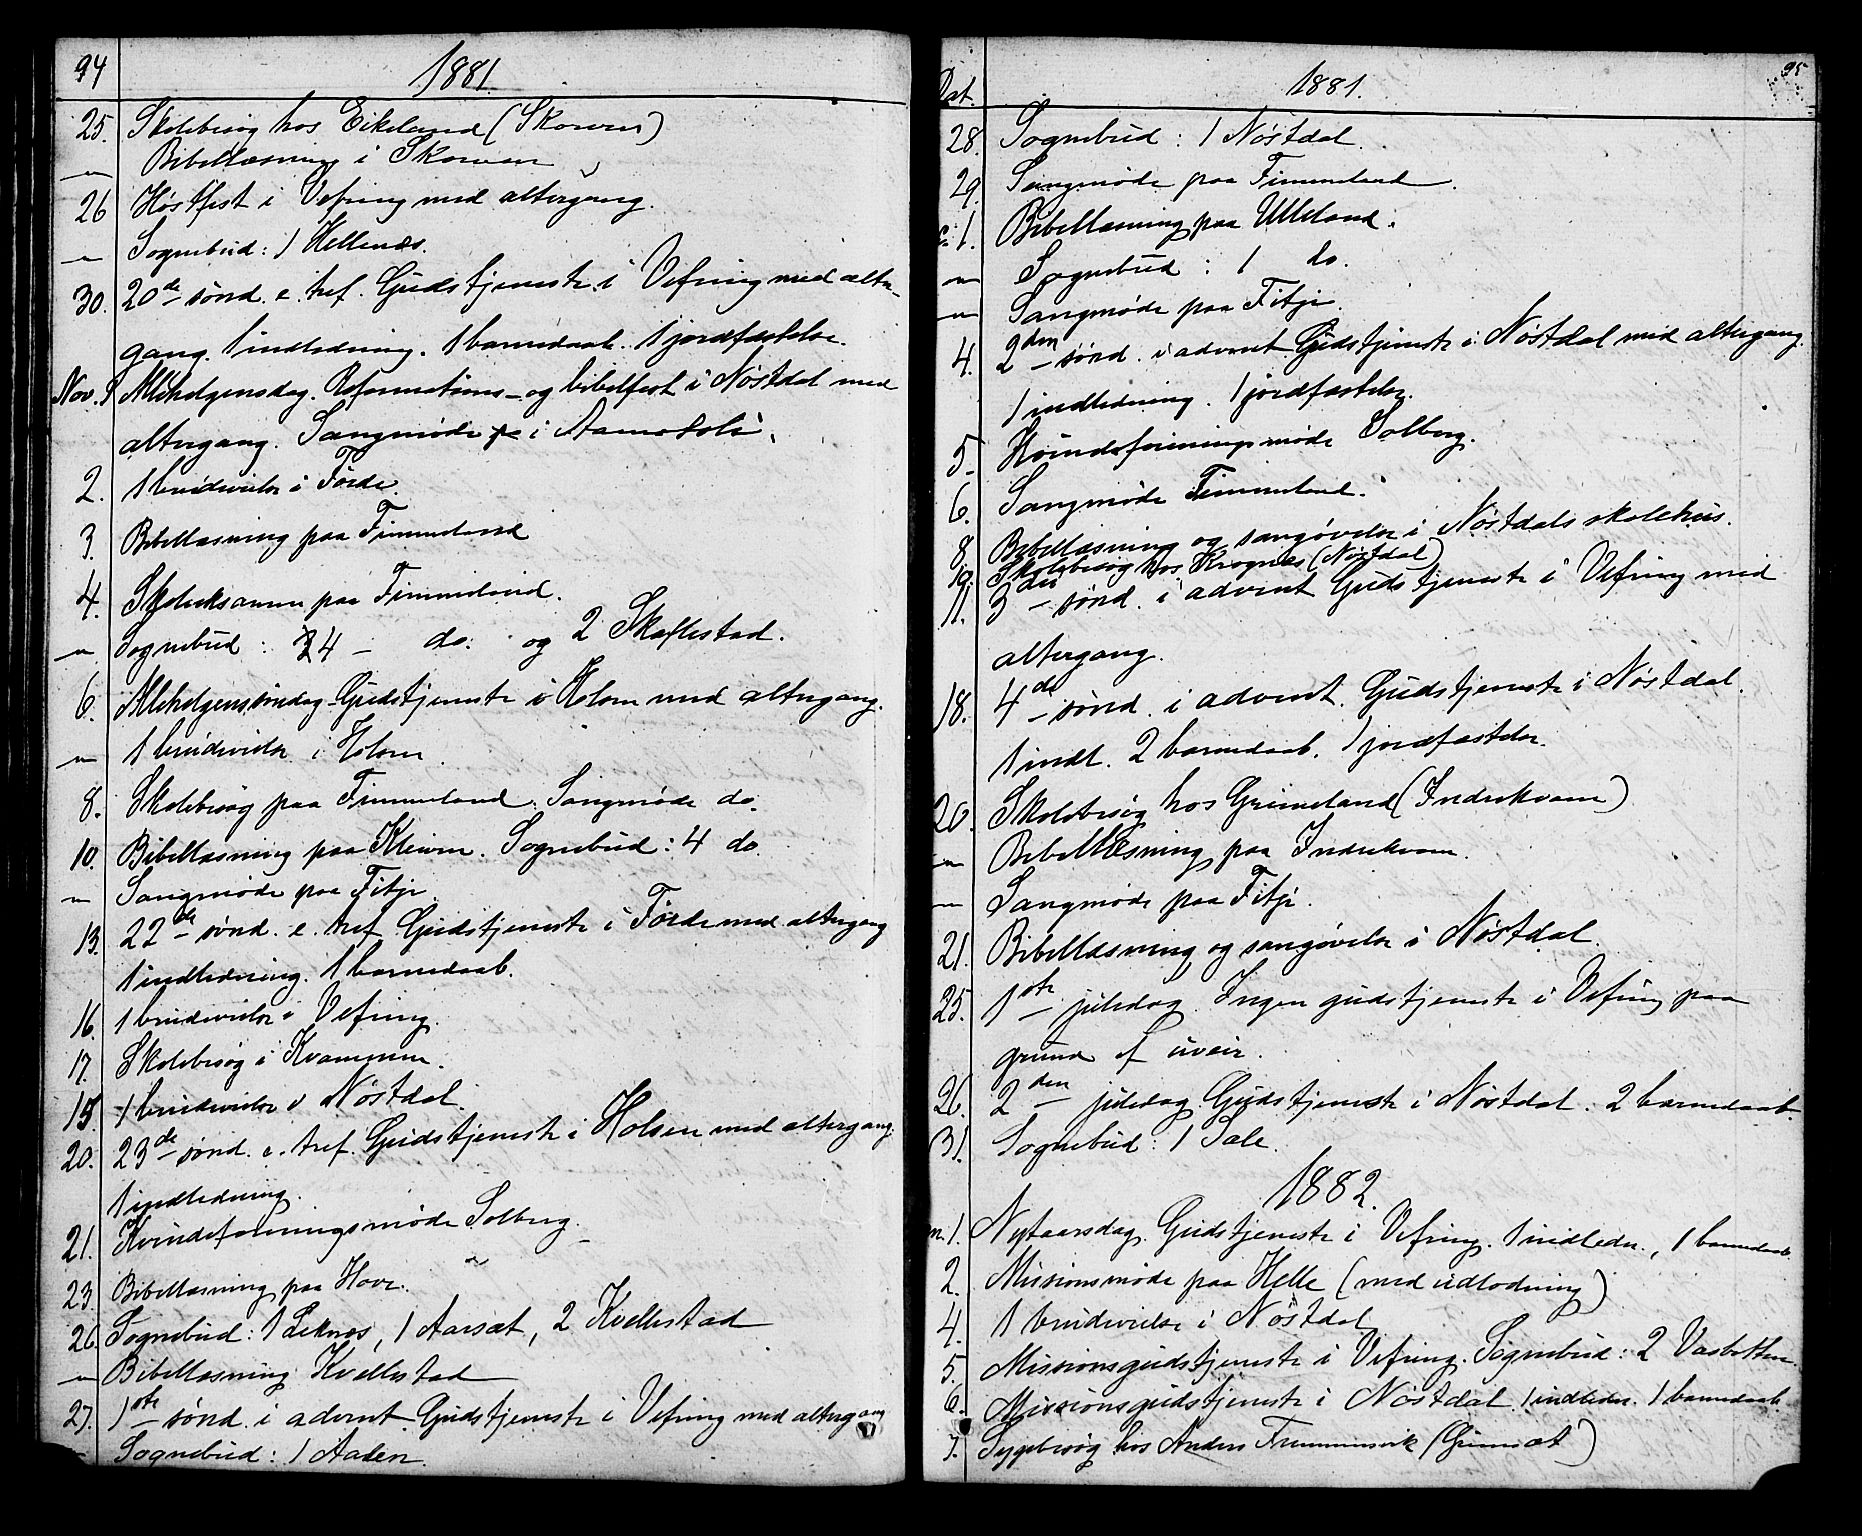 94
1881.
25. Skolebesøg hos Eikeland (Skorven)
— Bibellæsning i Skorven
26 Høstfest i Vefring med altergang.
— Sognebud: 1 Hellenæs.
30. 20de sønd. e. tref. Gudstjeneste i Vefring med alter-
gang. 1 indledning. 1 barnedaab. 1 jordfæstelse.
Nov. 1 Allehelgensdag. Reformations- og bibelfest i Nøstdal med
altergang. Sangmøde i
2. 1 brudevielse i Førde.
3. Bibellæsning paa Fimmeland
4. Skoleeksamen paa Fimmeland.
— Sognebud: 4 — do. og 2 Skaflestad.
6. Allehelgenssøndag. Gudstjeneste i Holsen med altergang.
— 1 brudevielse i Holsen.
8. Skolebesøg paa Fimmeland. Sangmøde do.
10. Bibellæsning paa Kleiven. Sognebud: 4 do.
— Sangmøde paa Fitje.
13. 22de sønd. e. tref. Gudstjeneste i Førde med altergang
1 indledning. 1 barnedaab.
16. 1 brudevielse i Vefring.
17. Skolebesøg i Kvammen.
15. 1 brudevielse i Nøstdal.
20. 23de sønd. e. tref. Gudstjeneste i Holsen med altergang.
1 indledning.
21. Kvindeforeningsmøde Solberg.
23. Bibellæsning paa Hove.
26. Sognebud: 1 Leknæs, 1 Aarsæt, 2 Kvellestad
— Bibellæsning Kvellestad
27. 1ste sønd. i advent. Gudstjeneste i Vefring med altergang
— Sognebud: 1 Aasen.
95
1881.
Dat.
28. Sognebud: 1 Nøstdal.
29. Sangmøde paa Fimmeland.
1. Bibellæsning paa Ulleland.
— Sognebud: 1 do.
— Sangmøde paa Fitje.
4. 2den sønd. i advent. Gudstjeneste i Nøstdal med altergang.
1 indledning. 1 jordfæstelse.
5. Kvindeforeningsmøde Solberg.
6. Sangmøde Fimmeland.
8. Bibellæsning og sangøvelse i Nøstdals skolehus.
10. Skolebesøg hos Krognæs (Nøstdal)
11. 3die sønd. i advent. Gudstjeneste i Vefring med
altergang.
18. 4de sønd. i advent. Gudstjeneste i Nøstdal.
1 indl. 2 barnedaab. 1 jordfæstelse.
20. Skolebesøg hos Grimeland (Indrekvam)
— Bibellæsning paa Indrekvam.
— Sangmøde paa Fitje.
21. Bibellæsning og sangøvelse i Nøstdal.
25. 1ste juledag. Ingen gudstjeneste i Vefring paa
grund af uveir.
26. 2den juledag. Gudstjeneste i Nøstdal. 2 barnedaab.
31. Sognebud: 1 Sale.
1882.
1. Nytaarsdag. Gudstjeneste i Vefring. 1 indledn., 1 barnedaab
2. Missionsmøde paa Helle (med udlodning)
4. 1 brudevielse i Nøstdal
5. Missionsgudstjeneste i Vefring. Sognebud: 2 Vasbotten.
6. Missionsgudstjeneste i Nøstdal. 1 indledn. 1 barnedaab.
7. Sygebesøg hos Anders Fremmersvik (Grimsæt)